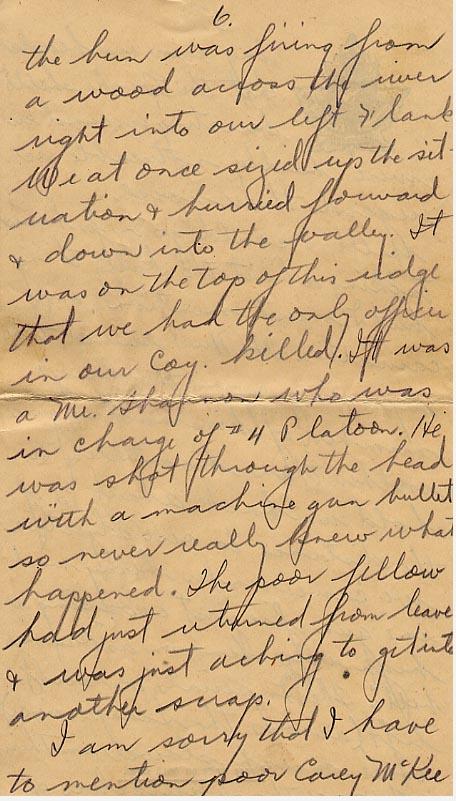 6.
the hun was firing from
a wood across the river
right into our left Flank
We at once sized up the sit-
uation & hurried forward
& down into the valley. It
was on the top of this ridge
that we had the only officer
in our Coy. killed. It was
a Mr. Shannon who was
in charge of #4 Platoon. He
was shot through the head
with a machine gun bullet
so never really knew what
happened. The poor fellow
had just returned from leave
& was just aching to get into
another scrap.
I am sorry that I have
to mention poor Corey McKee